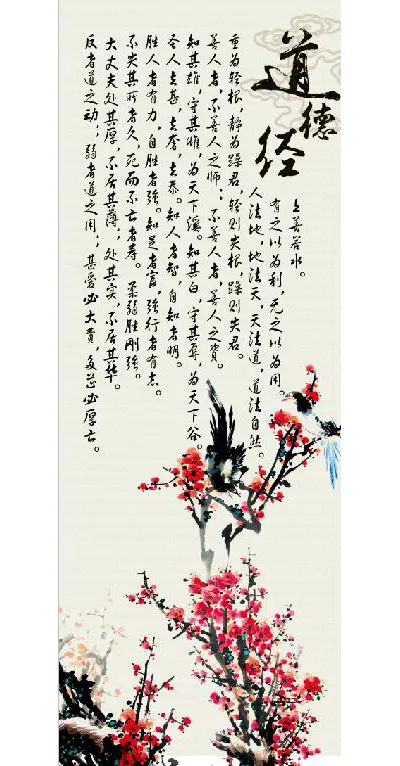 道德经
上善若水。
有之以为利，无之以为用。
人法地，地法天，天法道，道法自然。
重为轻根，静为躁君，轻则失根，躁则失君。
善人者，不善人之师；不善人者，善人之资。
知其雄，守其雌，为天下溪。知其白，守其辱，为天下谷。
圣人去甚，去奢，去泰。知人者智，自知者明。
胜人者有力，自胜者强。知足者富，强行者有志。
不失其所者久，死而不亡者寿。柔弱胜刚强。
大丈夫处其厚，不居其薄，处其实，不居其华。
反者道之动；弱者道之用，甚爱必大费，多藏必厚亡。